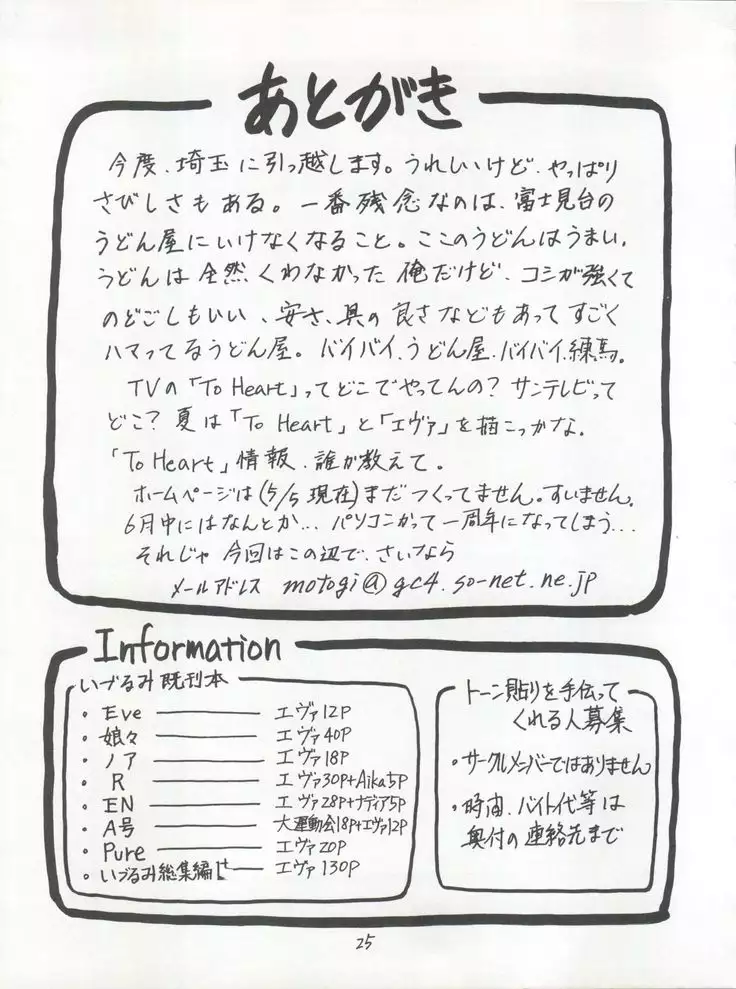 あとがき
今度、埼玉に引っ越します。うれしいけど、やっぱり
さびしさもある。一番残念なのは、富士見台の
うどん屋にいけなくなること。ここのうどんはうまい。
うどんは全然くわなかった俺だけど、コシが強くて
のどごしもいい、安さ、具の良さなどもあってすごく
ハマってるうどん屋。バイバイ、うどん屋、バイバイ、練馬。
TVの「To Heart」ってどこでやってんの？サンテレビって
どこ？夏は「To Heart」と「エヴァ」を描こっかな。
「To Heart」情報、誰か教えて。
ホームページは(5/5現在)まだつくってません。すいません。
6月中にはなんとか... パソコンかって一周年になってしまう...
それじゃ今回はこの辺で、さいなら
メールアドレス motogi@gc4.so-net.ne.jp
Information
いづるみ既刊本
・Eve ―― エヴァ12P
・娘々 ―― エヴァ40P
・ノア ―― エヴァ18P
・R ―― エヴァ30P+Aika5P
・EN ―― エヴァ28P+ナディア5P
・A号 ―― 大運動会18P+エヴァ12P
・Pure ―― エヴァ20P
・いづるみ総集編 ―― エヴァ130P
トーン貼りを手伝って
くれる人募集
・サークルメンバーではありません
・時間、バイト代等は
奥付の連絡先まで
25